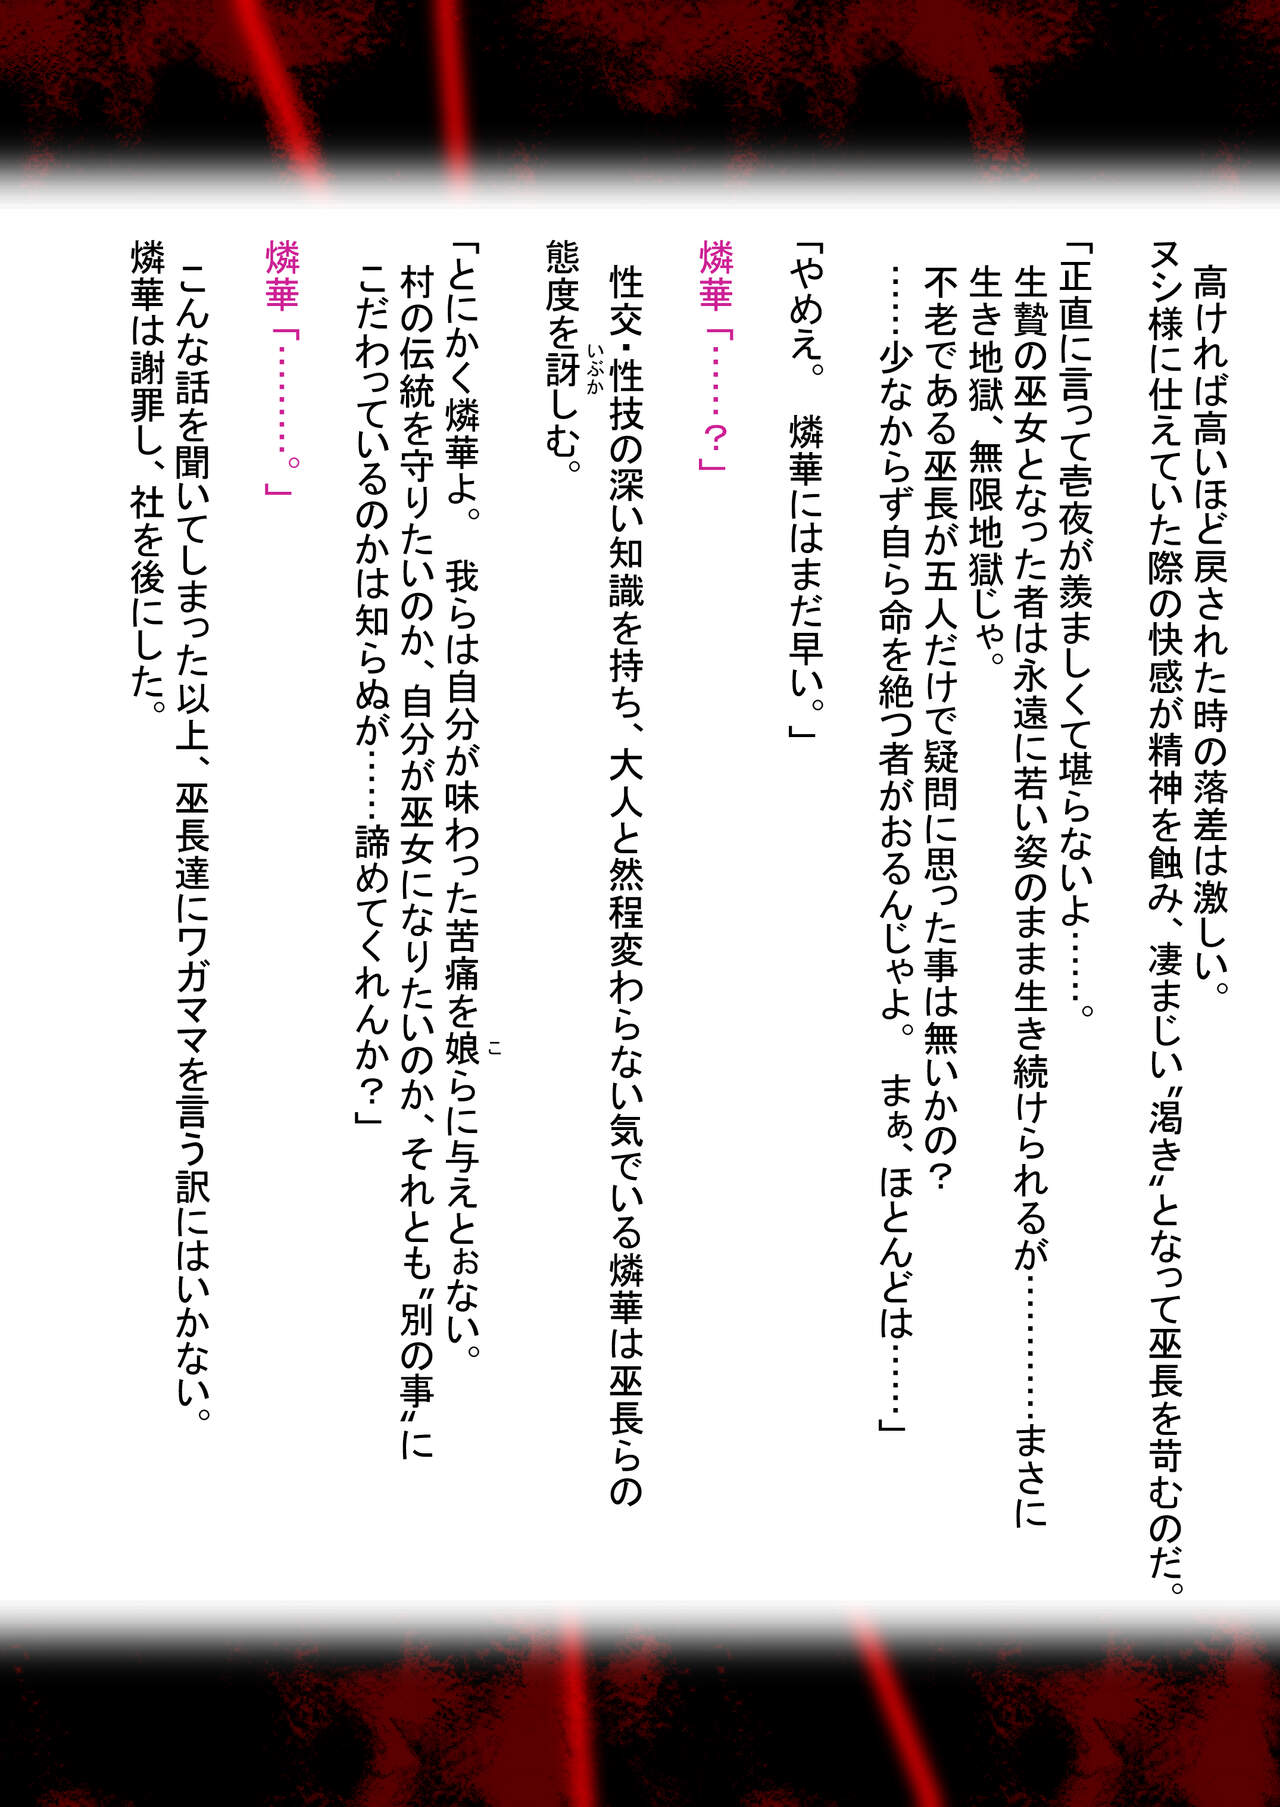 高ければ高いほど戻された時の落差は激しい。
ヌシ様に仕えていた際の快感が精神を蝕み、凄まじい〝渇き〟となって巫長を苛むのだ。
「正直に言って壱夜が羨ましくて堪らないよ……。
生贄の巫女となった者は永遠に若い姿のまま生き続けられるが…………まさに
生き地獄、無限地獄じゃ。
不老である巫長が五人だけで疑問に思った事は無いかの？
……少なからず自ら命を絶つ者がおるんじゃよ。　まぁ、ほとんどは……」
「やめえ。　燐華にはまだ早い。」
燐華「……？」
性交・性技の深い知識を持ち、大人と然程変わらない気でいる燐華は巫長らの
態度を訝しむ。
いぶか
「とにかく燐華よ。　我らは自分が味わった苦痛を娘らに与えとぉない。
こ
村の伝統を守りたいのか、自分が巫女になりたいのか、それとも〝別の事〟に
こだわっているのかは知らぬが……諦めてくれんか？」
燐華「………。」
こんな話を聞いてしまった以上、巫長達にワガママを言う訳にはいかない。
燐華は謝罪し、社を後にした。